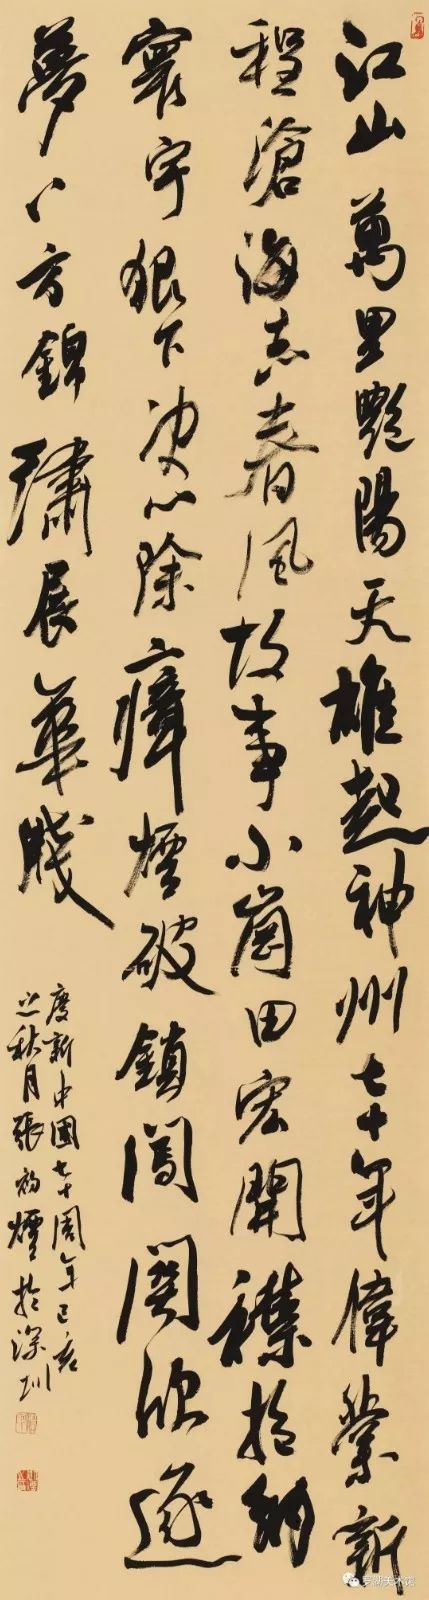 江山萬里艷陽天雄起神州七十年偉業新
程滄海志春風故事小崗田宏開襟抱納
寰宇狠下決心除瘴煙破鎮闖關欣逐
夢八方錦繡展華牋
慶新中國七十周年己亥
之秋月張於深圳
罗湖美术馆